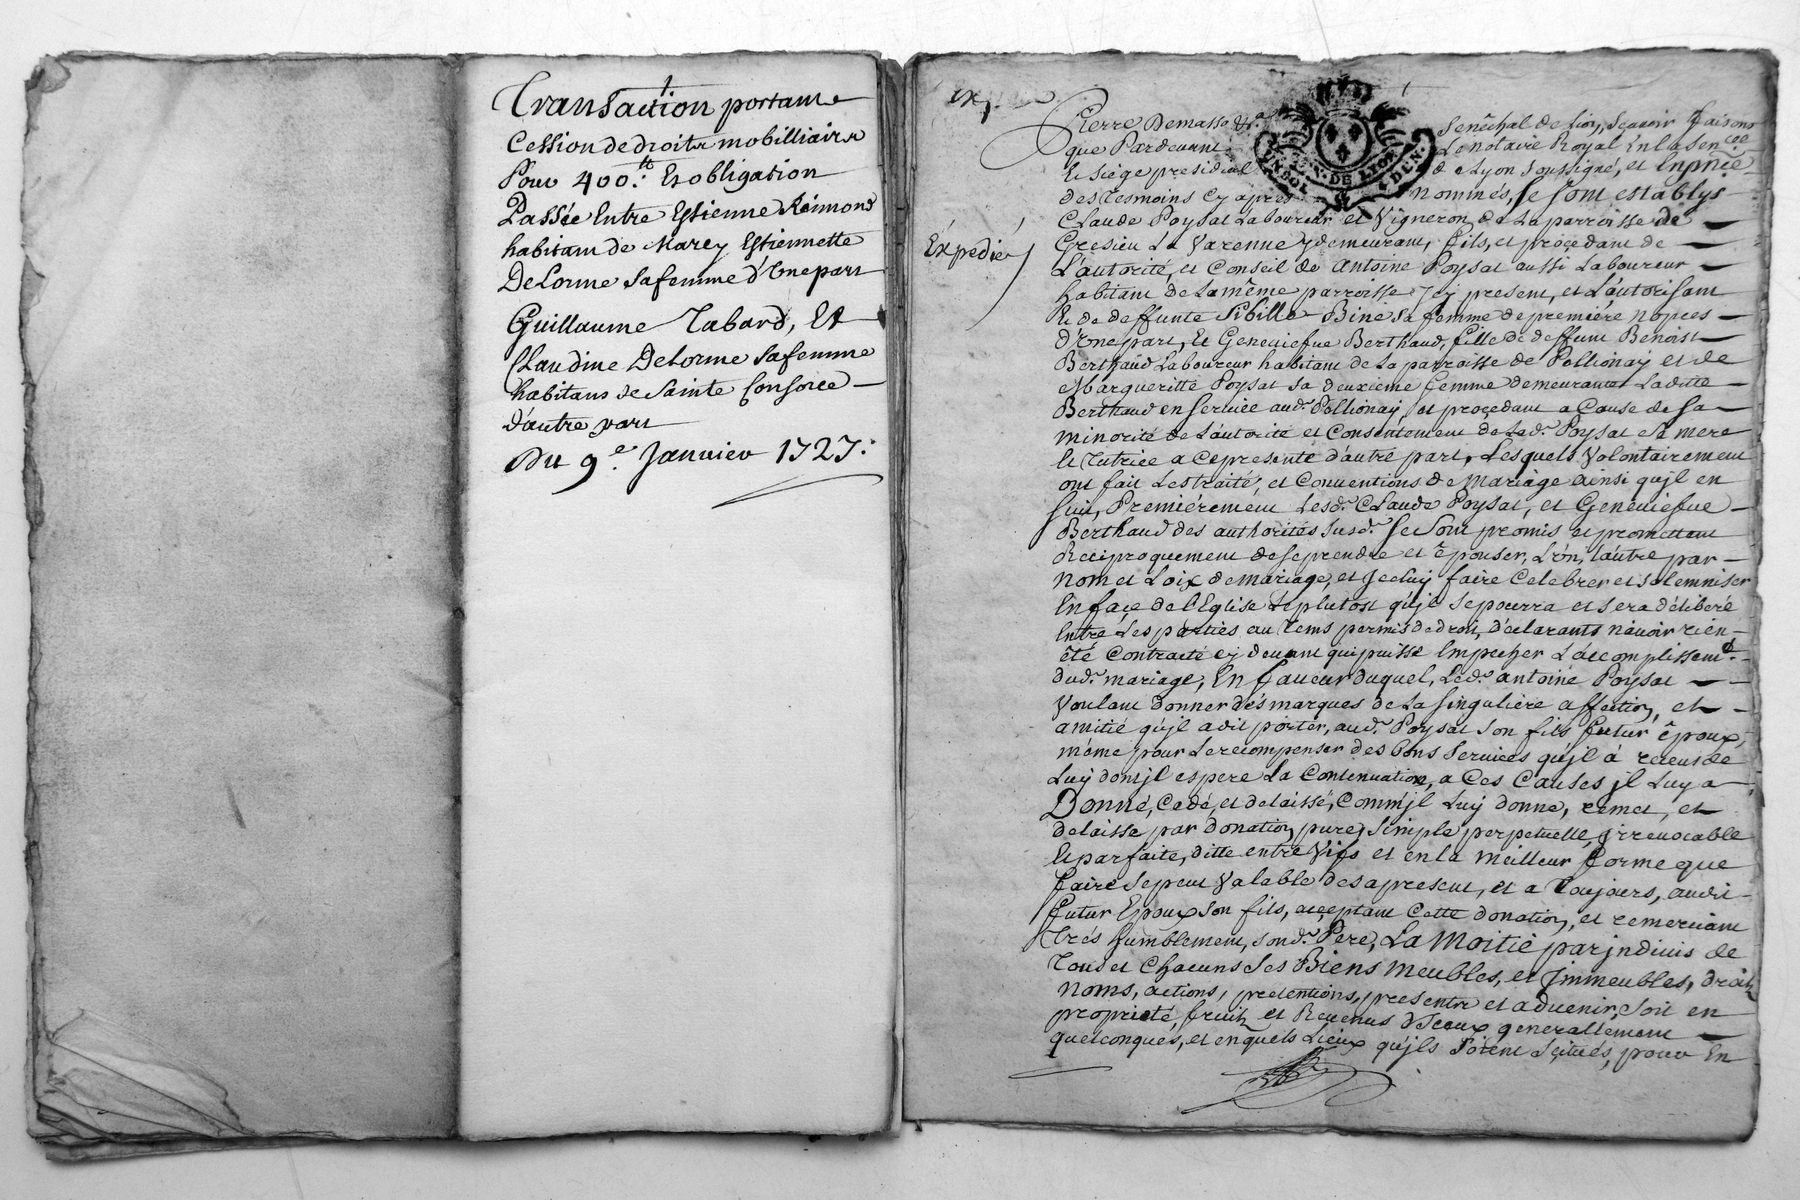 Transaction portant
Cession de droits mobilliairs
Pour 400.tt Et obligation
Passée Entre Estienne Reimond
habitant de Marcy Estiennette
DeLorme Sa femme d'Une part
Guillaume Tabard, Et
Claudine DeLorme Sa femme
habitans de Sainte Consorce
d'autre part
Du 9.e Janvier 1727.
Expedié
Pierre Demasso &.a Senêchal de Lion, Scavoir faisons
que Pardevant Le Notaire Royal En la Sen.cée
Et Siège presidial de Lyon Soussigné, et En p̃nce
des Tesmoins Cy apres Nommés, Se Sont establys
GEN. DE LION
UN SOL
DEUX DEN.
Claude Poysat Laboureur et Vigneron de La parroisse de
Gresieu La Varenne y demeurant, fils, et procedant de
L'autorité, et Conseil de Antoine Poysat aussi Laboureur
habitant de La même parroisse Icy present, et L'autorisant
Et de deffunte Sibille Bine Sa femme de première Nopces
d'Une part, Et Geneviefve Berthaud, fille de deffunt Benoist
Berthaud Laboureur habitant de La parroisse de Pollionay et de
Margueritte Poysat Sa deuxieme femme demeurante Laditte
Berthaud en Service aud.t Pollionay, et procedant a Cause de Sa
minorité de L'autorité et Consentement de Lad.e Poysat Sa mere
Et Tutrice a Ce presente d'autre part, Lesquels Volontairement
ont fait Les traité, et Conventions de Mariage ainsi qu'jl en
Suit, Premiérement Lesd.s Claude Poysat, et Geneviefve
Berthaud des authorités Susd.s Se Sont promis et promettent
Reciproquement de Se prendre et êpouser, L'ún, L'autre par
Nom et Loix de mariage, et Jceluy faire Celebrer et Solemniser
En façe de l'Eglise Le plutost qu'jl Se pourra et Sera déliberé
Entre Les parties au Tems permis de droit, déclarants n'avoir rien
êté Contracté cy devant qui puisse Empecher L'accomplissem.t
dud.t mariage, En faveur duquel, Led.t antoine Poysat
Voulant donner dés marques de La Singulière affection, et
amitié qu'jl a dit porter, aud.t Poysat Son fils futur êpoux,
méme pour Le recompenser des bons Services qu'jl à receus de
Luy dont jl espere La Continuation, a Ces Causes jl Luy a
Donné, Cedé, et delaissé, Comm'jl Luy donne, remet, et
delaisse par donation pure, Simple perpetuelle, jrrevocable
Et parfaite, ditte entre Vifs et en la meilleur forme que
faire Se peut Valable des a present, et a Toujours, audit
futur Epoux Son fils, acceptant Cette donation, et remerciant
Trés humblement, Sond.t Pere, La Moitié par jndivis de
Tous et Chacuns Ses Biens meubles, et Jmmeubles, droits
noms, actions, pretentions, presentz et advenir, Soit en
proprieté, fruits et Revenus d'Jceux generallement
quelconques, et en quels Lieux qu'jls Soient Scitués, pour En